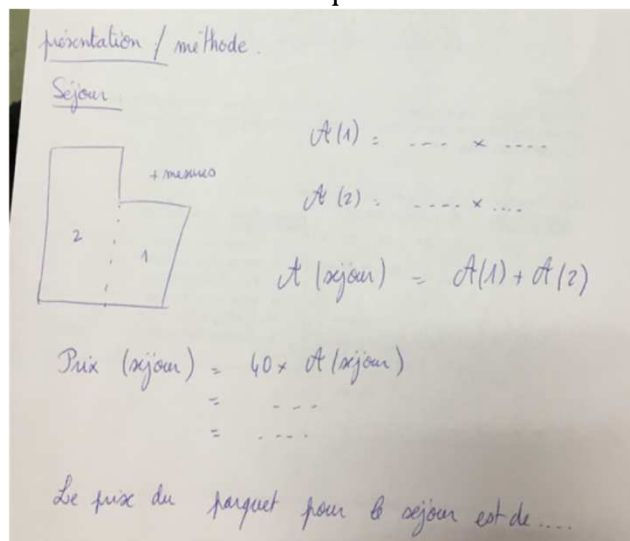 présentation / méthode.
Séjour
A(1) = ... × ....
+ mesures
A(2) = .... × ....
2
1
A(séjour) = A(1) + A(2)
Prix (séjour) = 40 × A(séjour)
= ...
= ....
Le prix du parquet pour le séjour est de ....